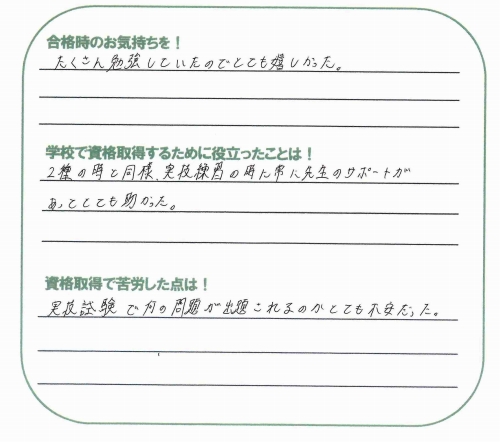 合格時のお気持ちを！
たくさん勉強していたのでとても嬉しかった。
学校で資格取得するために役立ったことは！
2種の時と同様、実技練習の時に常に先生のサポートが
あってとても助かった。
資格取得で苦労した点は！
実技試験で何の問題が出題されるのかとても不安だった。